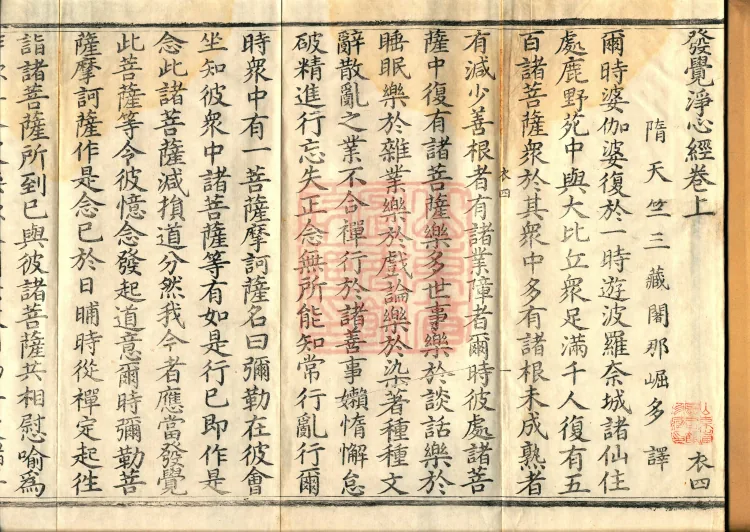 發覺淨心經卷上
隋天竺三藏闍那崛多譯
衣四
爾時婆伽婆復於一時遊波羅奈城諸仙住
處鹿野苑中與大比丘衆足滿千人復有五
百諸菩薩衆於其衆中多有諸根未成熟者
衣四
有減少善根者有諸業障者爾時彼處諸菩
薩中復有諸菩薩樂多世事樂於談話樂於
睡眠樂於雜業樂於戲論樂於染著種種文
辭散亂之業不合禪行於諸善事嬾惰懈怠
破精進行忘失正念無所能知常行亂行爾
時衆中有一菩薩摩訶薩名曰彌勒在彼會
坐知彼衆中諸菩薩等有如是行已即作是
念此諸菩薩減損道分然我今者應當發覺
此菩薩等令彼憶念發起道意爾時彌勒菩
薩摩訶薩作是念已於日晡時從禪定起往
詣諸菩薩所到已與彼諸菩薩共相慰喻爲